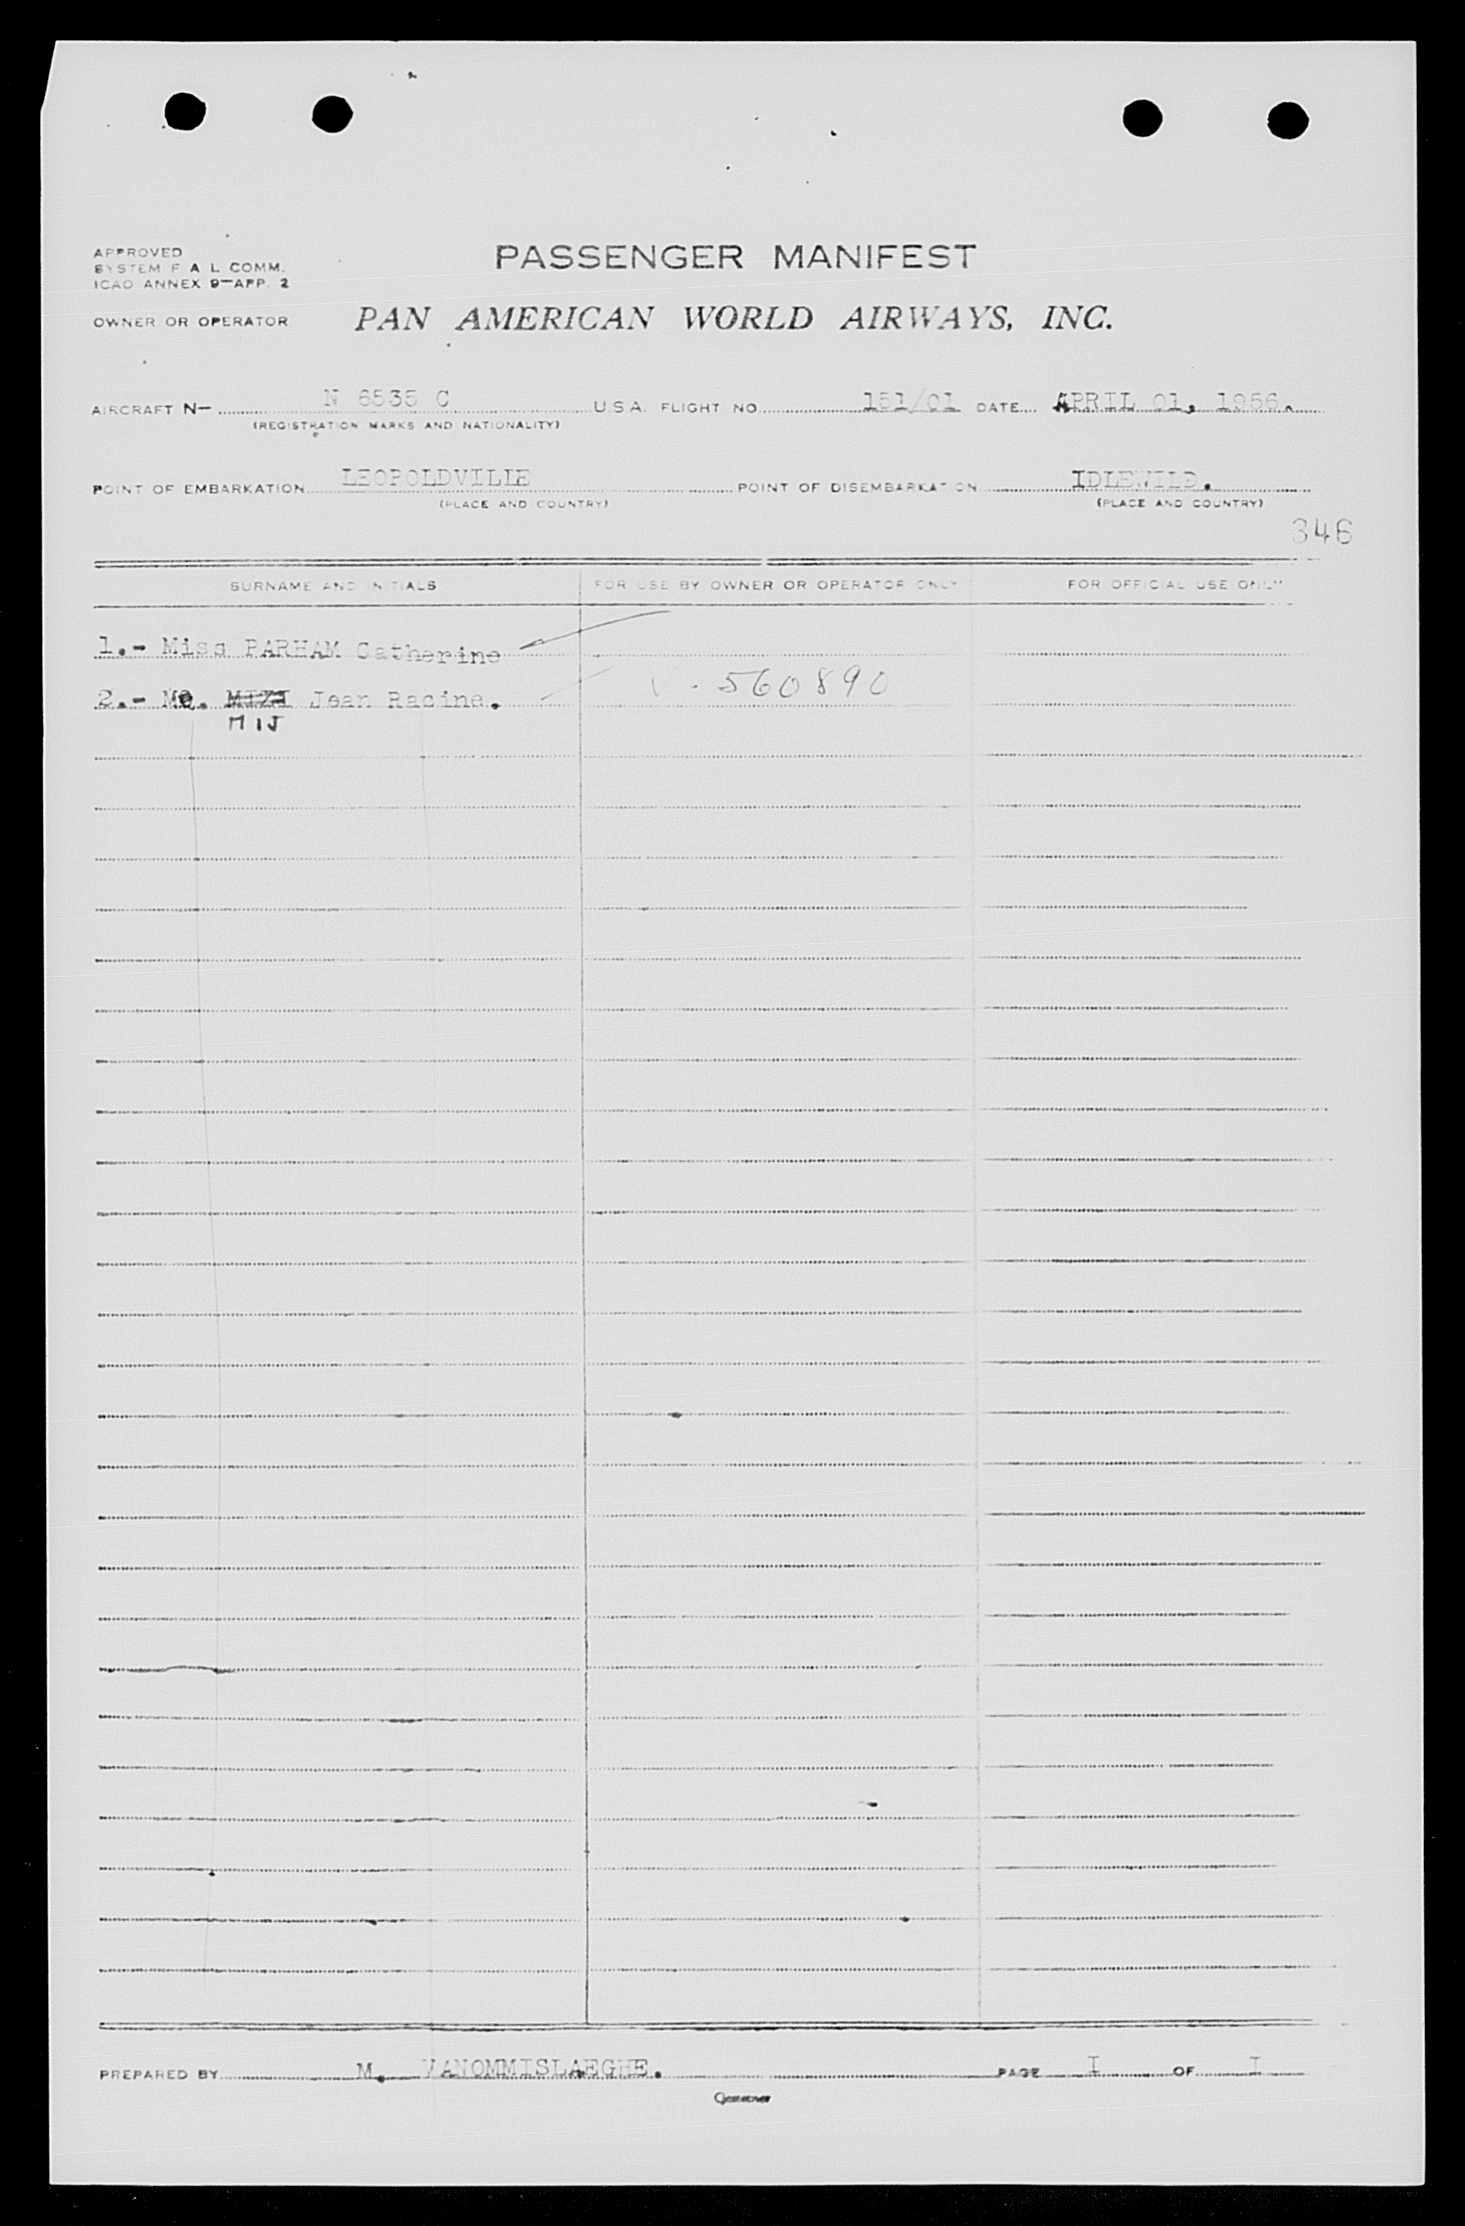 APPROVED
SYSTEM F A L COMM.
ICAO ANNEX 9—APP. 2
PASSENGER MANIFEST
OWNER OR OPERATOR PAN AMERICAN WORLD AIRWAYS, INC.
AIRCRAFT N— N 6535 C U.S.A. FLIGHT NO. 151/01 DATE APRIL 01, 1956.
(REGISTRATION MARKS AND NATIONALITY)
POINT OF EMBARKATION LEOPOLDVILLE POINT OF DISEMBARKATION IDLEWILD.
(PLACE AND COUNTRY) (PLACE AND COUNTRY)
346
SURNAME AND INITIALS FOR USE BY OWNER OR OPERATOR ONLY FOR OFFICIAL USE ONLY
1.- Miss PARHAM Catherine
2.- Mr. Jean Racine. V-560890
MIJ
PREPARED BY M. VANOMMISLAEGHE. PAGE I OF I